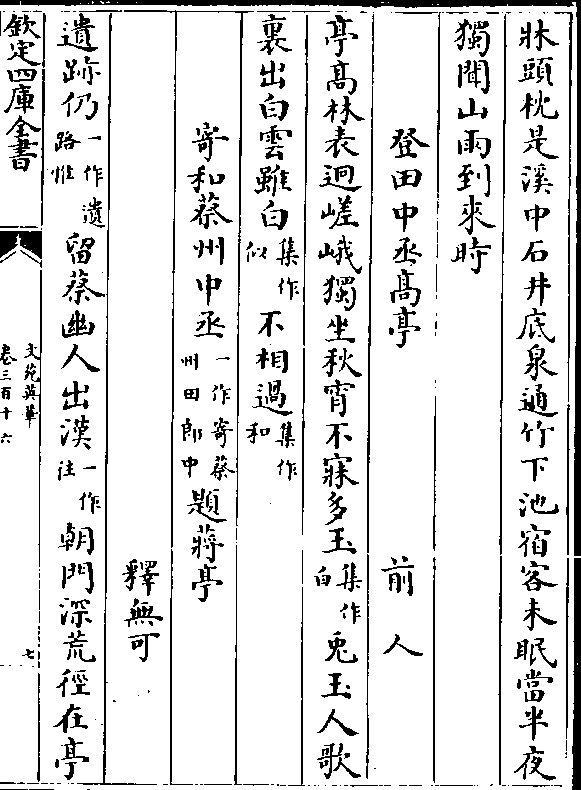 牀頭枕是溪中石井底泉通竹下池宿客未眠當半夜
獨聞山雨到來時
登田中丞髙亭 前人
亭髙林表迥嵯峨獨坐秋宵不寐多玉集作白兎玉人歌
裏出白雲雖白集作似不相過集作和
寄和蔡州中丞一作寄蔡州田郎中題蔣亭
釋無可
遺跡仍一作遺路惟留蔡幽人出漢一作往朝門深荒徑在亭
欽定四庫全書
文苑英華
卷三百十六
七